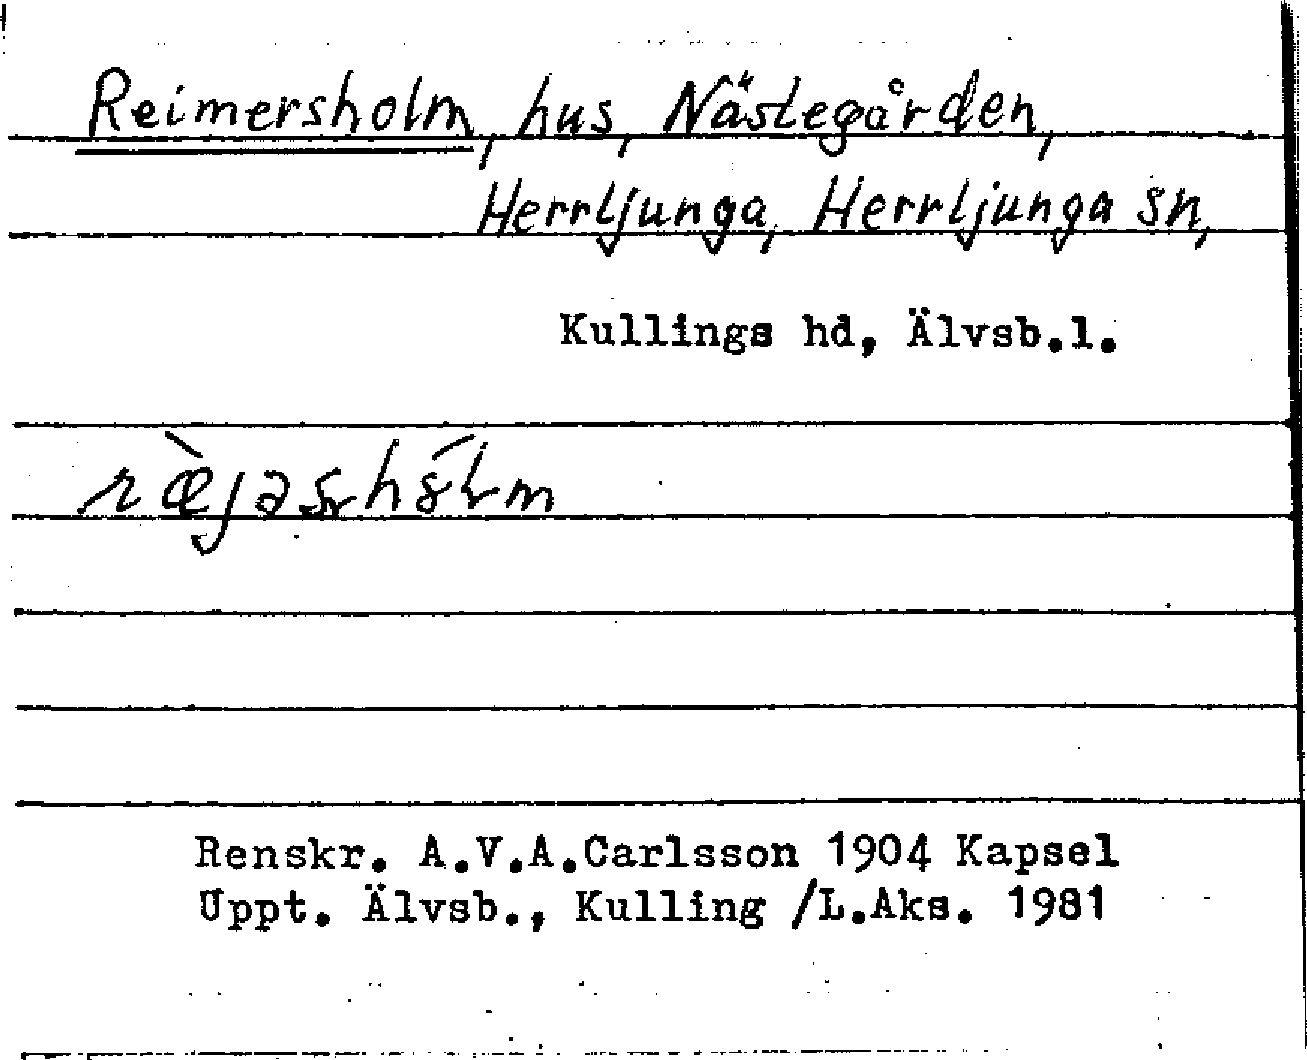 Reimersholm, hus, Nästegården,
Herrljunga, Herrljunga sn,
Kullings hd, Älvsb.l.
Renskr. A.V.A.Carlsson 1904 Kapsel
Uppt. Älvsb., Kulling /L.Aks. 1981